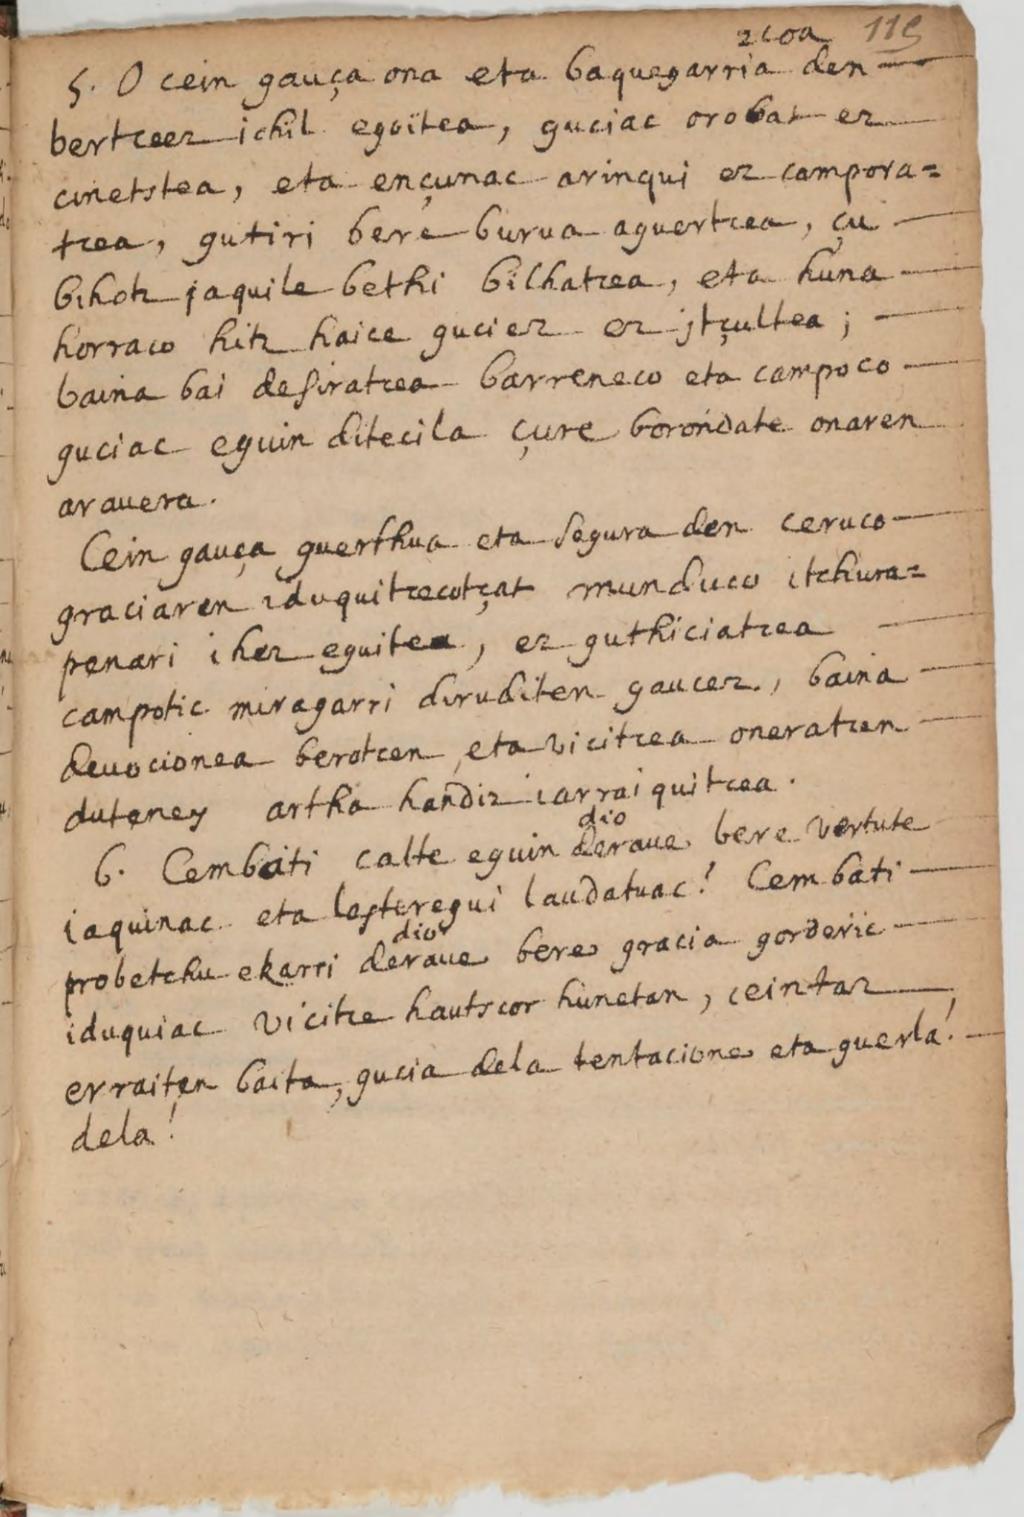 115
zcoa
5. O cein gauça ona eta baquegarria den
bertceez ichil egoitea, guciac orobat ez
cinetstea, eta ençunac arinqui ez campora=
tcea, gutiri bere burua aguertcea, çu
bihotz jaquile bethi bilhatcea, eta huna
horraco hitz haice guciez ez jtçultea;
baina bai desiratcea barreneco eta campoco
guciac eguin ditecila çure borondate onaren
arauera.
Cein gauça guerthua eta segura den ceruco
graciaren iduquitcecotçat munduco itchura=
penari ihez eguitea, ez guthiciatcea
campotic miragarri diruditen gaucez, baina
deuocionea berotcen, eta vicitcea oneratcen
duteney artha handiz iarraiquitcea.
dio
6. Cembaiti calte eguin deraue bere vertute
iaquinac eta lasteregui laudatuac! Cembati
dio
probetchu ekarri deraue bere gracia gorderic
iduquiac vicitce hautscor hunetan, ceintaz
erraiten baita, gucia dela tentacione eta guerla!
dela!